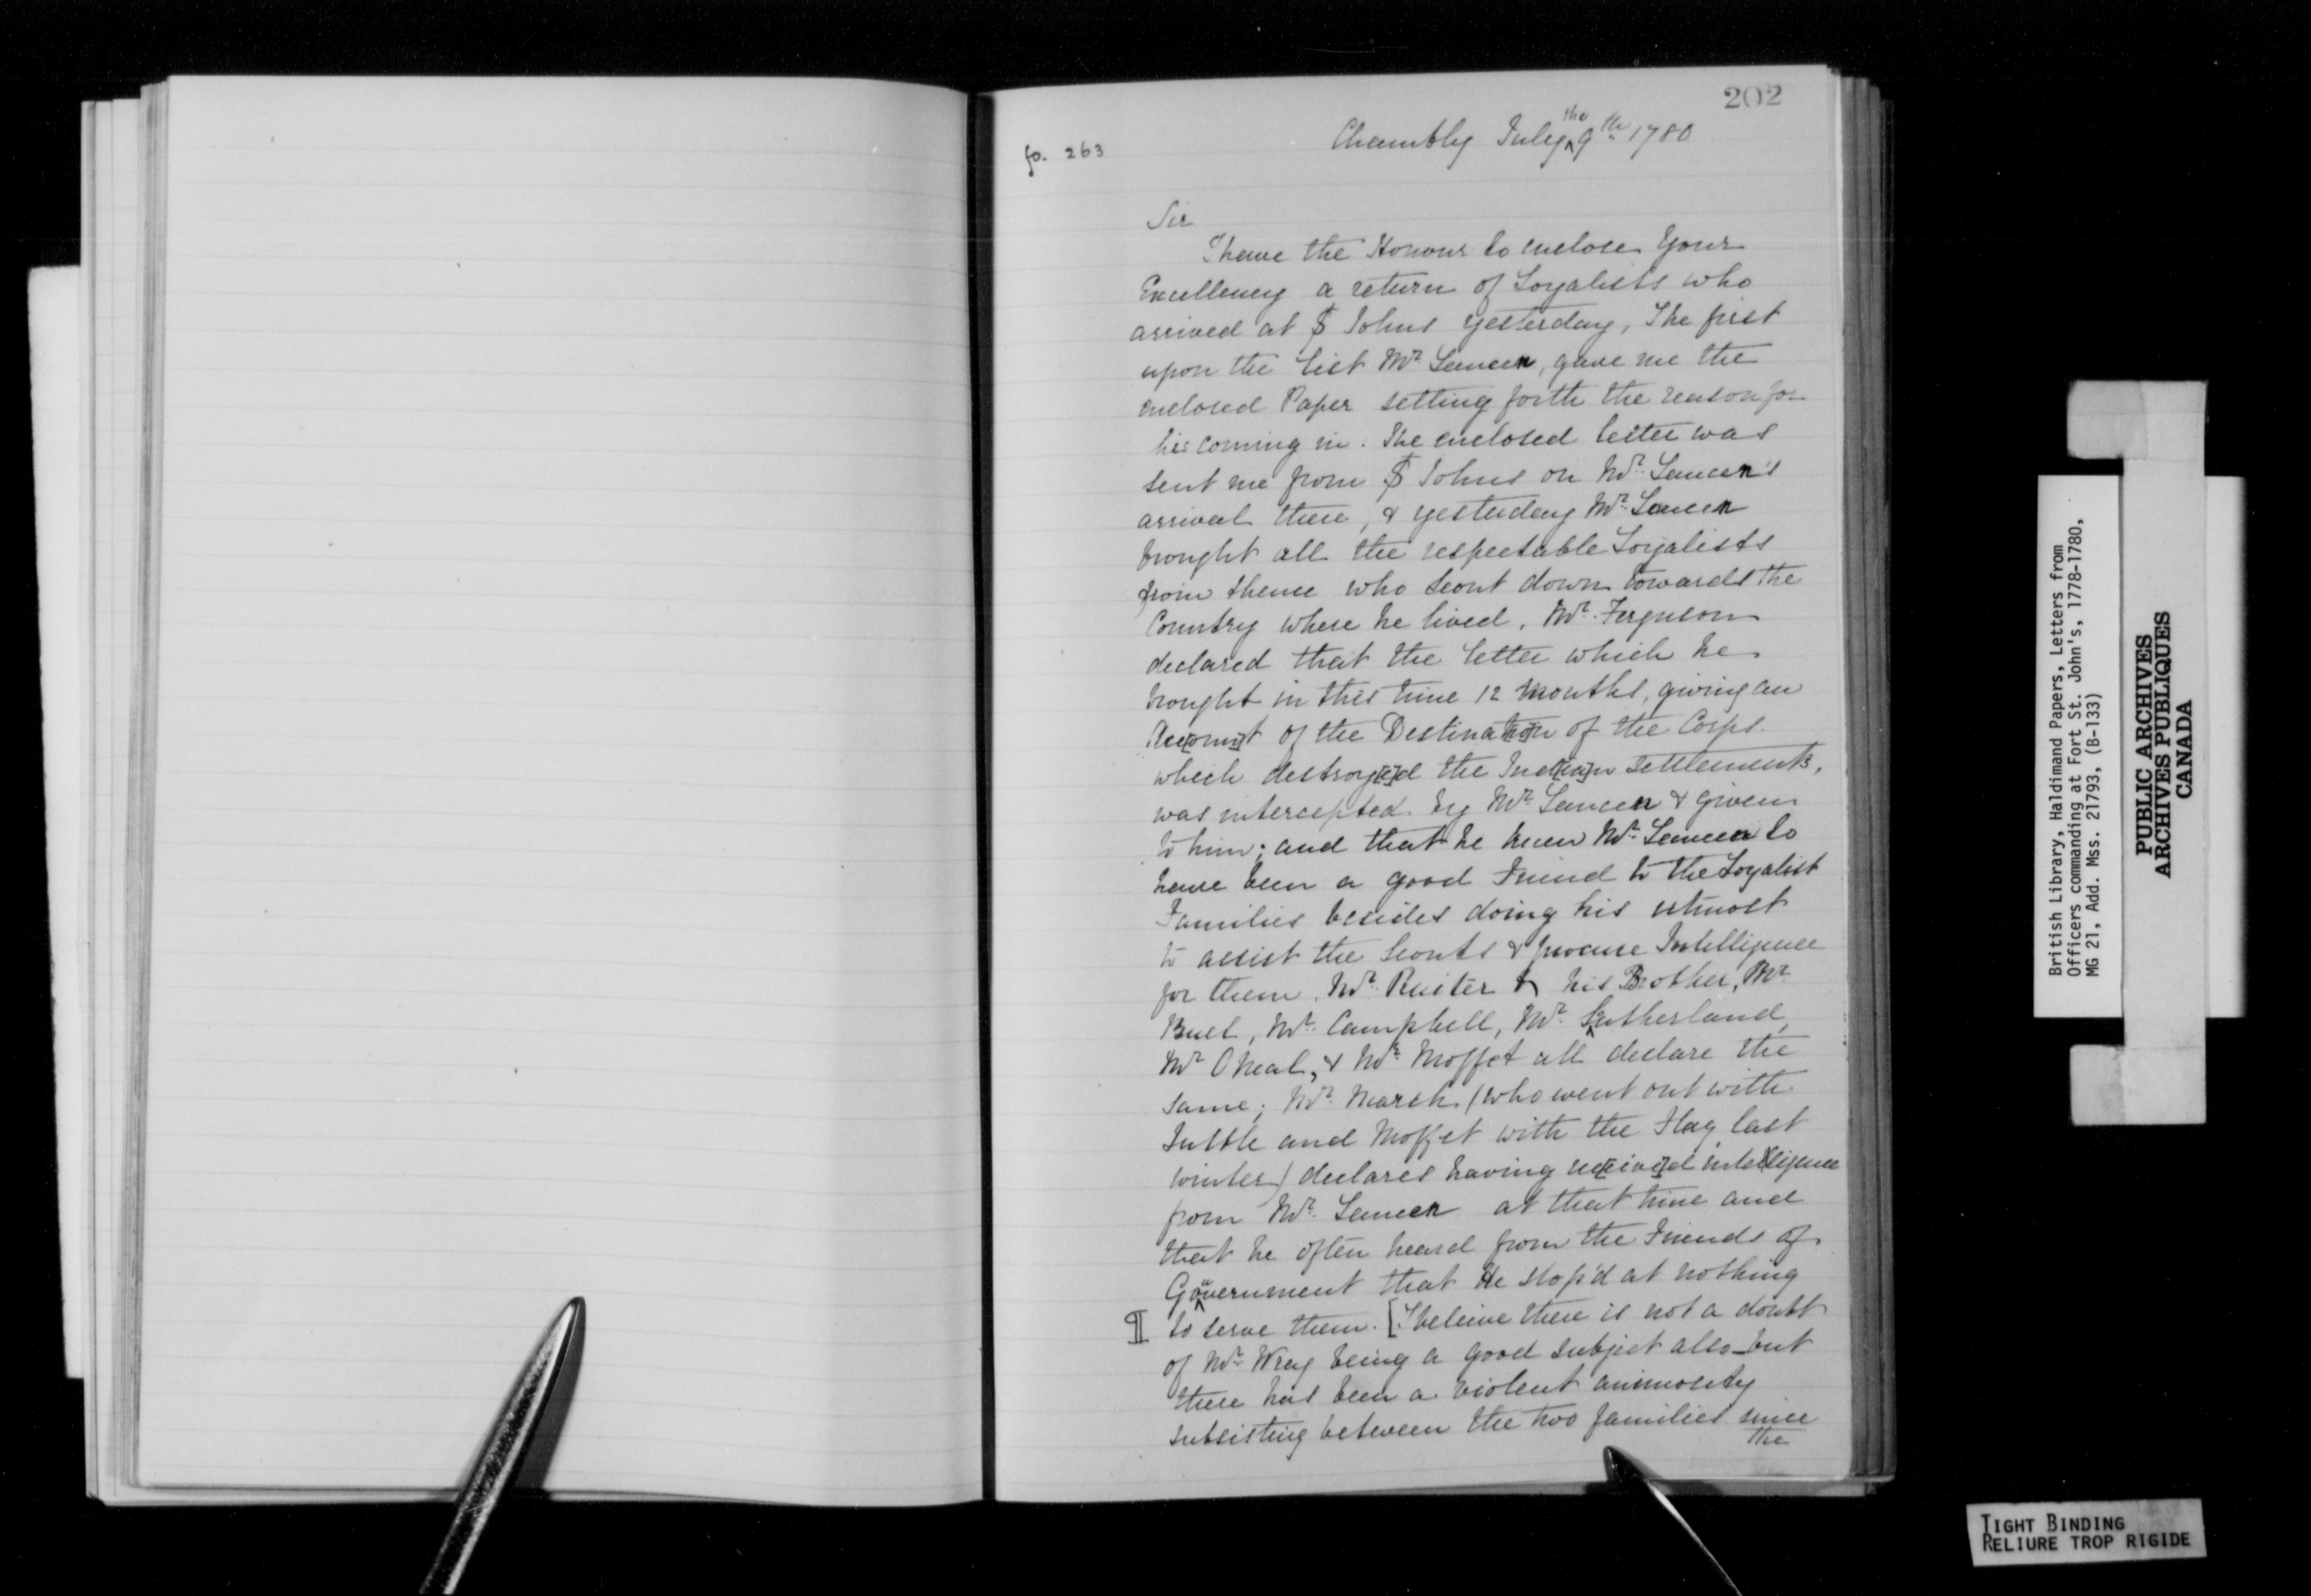 202
fo. 263
Chambly July the 9th 1780
Sir
I have the Honour to enclose Your
Excellency a return of Loyalists who
arrived at St Johns yesterday, The first
upon the list Mr. Sancer, gave me the
enclosed Paper setting forth the reason for
his coming in. The enclosed letter was
sent me from St Johns on Mr. Sancer's
arrival there, & yesterday Mr. Sancer
brought all the respectable Loyalists
from thence who scout down towards the
Country where he lived, Mr. Ferguson
declared that the letter which he
brought in this time 12 Months, giving an
Ac[coun]t of the Destina[tio]n of the Corps.
which destroy[e]d the Ind[ia]n Settlements,
was intercepted by Mr. Sancer & given
to him; and that he knew Mr. Sancer to
have been a good Friend to the Loyalist
Families besides doing his utmost
to assist the Scouts & procure Intelligence
for them. Mr. Ruiter & his Brother, Mr.
Buel, Mr. Campbell, Mr. Sutherland,
Mr. O Neal, & Mr. Moffet all declare the
same; Mr. Marsh (who went out with
Tuttle and Moffet with the Flag last
winter) declares having rec[eive]d intelligence
from Mr. Sancer at that time and
that he often heard from the Friends of
Government that He stop'd at nothing
¶ to serve them. [I beleive there is not a doubt
of Mr. Wray being a good subject also but
there has been a violent animosity
subsisting between the two families since
the
British Library, Haldimand Papers, Letters from
Officers commanding at Fort St. John's, 1778-1780,
MG 21, Add. Mss. 21793, (B-133)
PUBLIC ARCHIVES
ARCHIVES PUBLIQUES
CANADA
TIGHT BINDING
RELIURE TROP RIGIDE